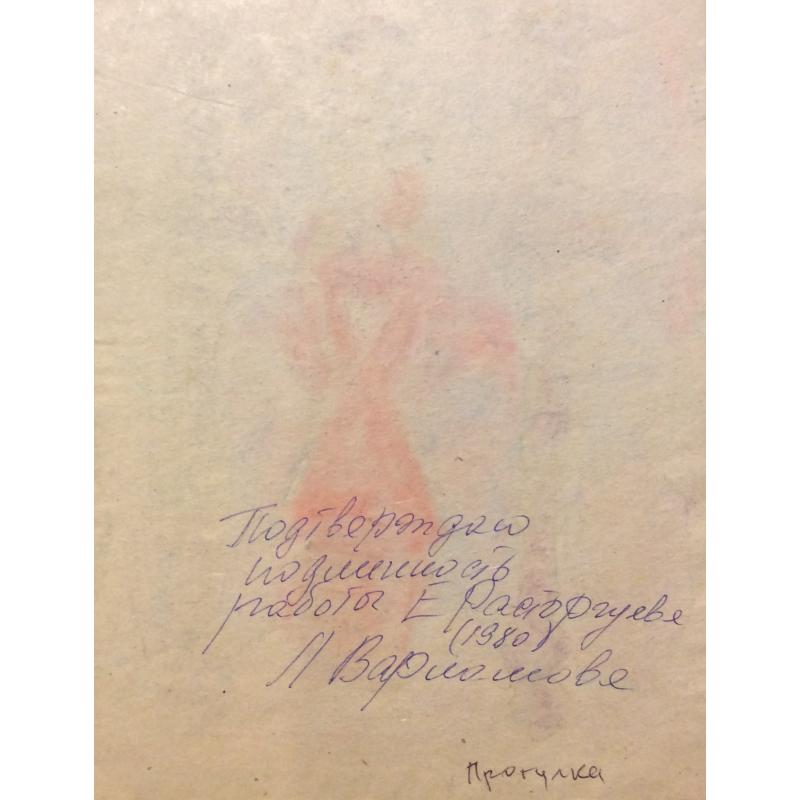 Подтверждаю
подлинность
работы Е Расторгуева
(1980)
Л Варламова
Прогулка